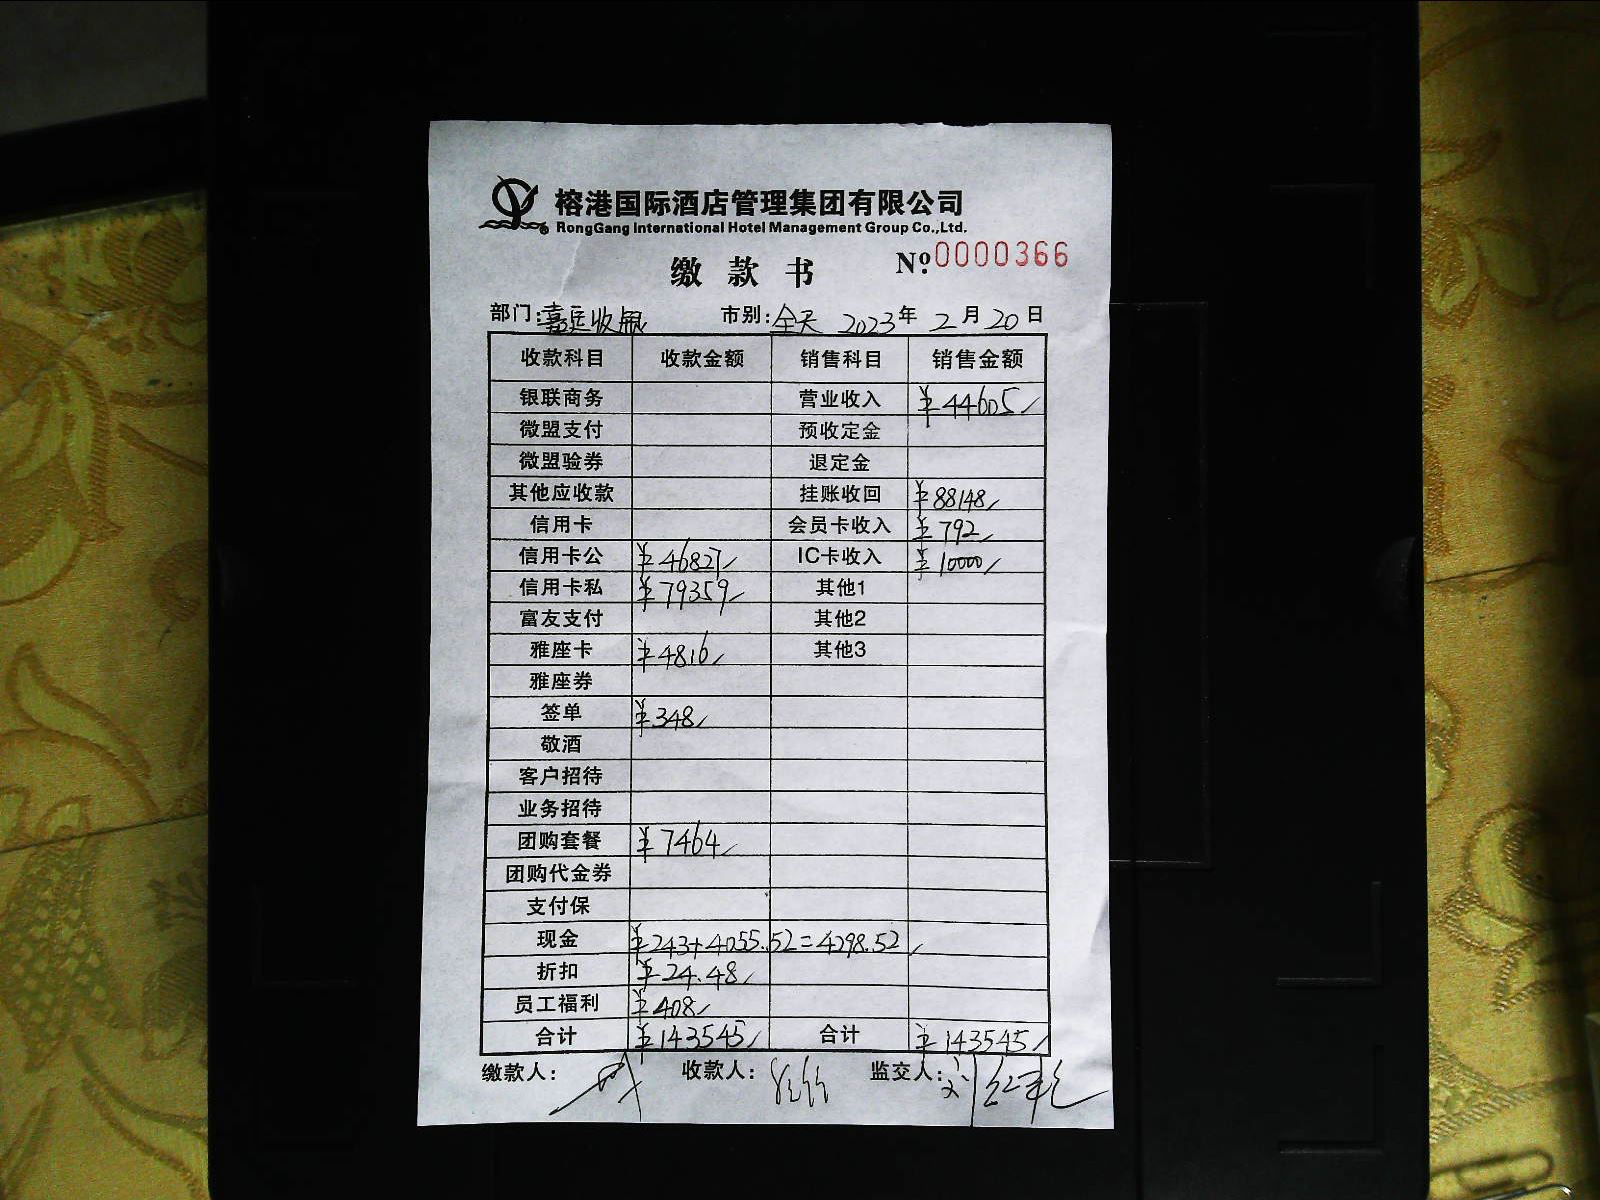 榕港国际酒店管理集团有限公司
RongGang International Hotel Management Group Co.,Ltd.
缴款书 №:0000366
部门:嘉廷收银 市别:全天 2023年2月20日
收款科目 收款金额 销售科目 销售金额
银联商务 营业收入 ¥44605
微盟支付 预收定金
微盟验券 退定金
其他应收款 挂账收回 ¥88148
信用卡 会员卡收入 ¥792
信用卡公 ¥46827 IC卡收入 ¥10000
信用卡私 ¥79359 其他1
富友支付 其他2
雅座卡 ¥4816 其他3
雅座券
签单 ¥348
敬酒
客户招待
业务招待
团购套餐 ¥7464
团购代金券
支付保
现金 ¥243+4055.52=4298.52
折扣 ¥24.48
员工福利 ¥408
合计 ¥143545 合计 ¥143545
缴款人: 收款人: 监交人: